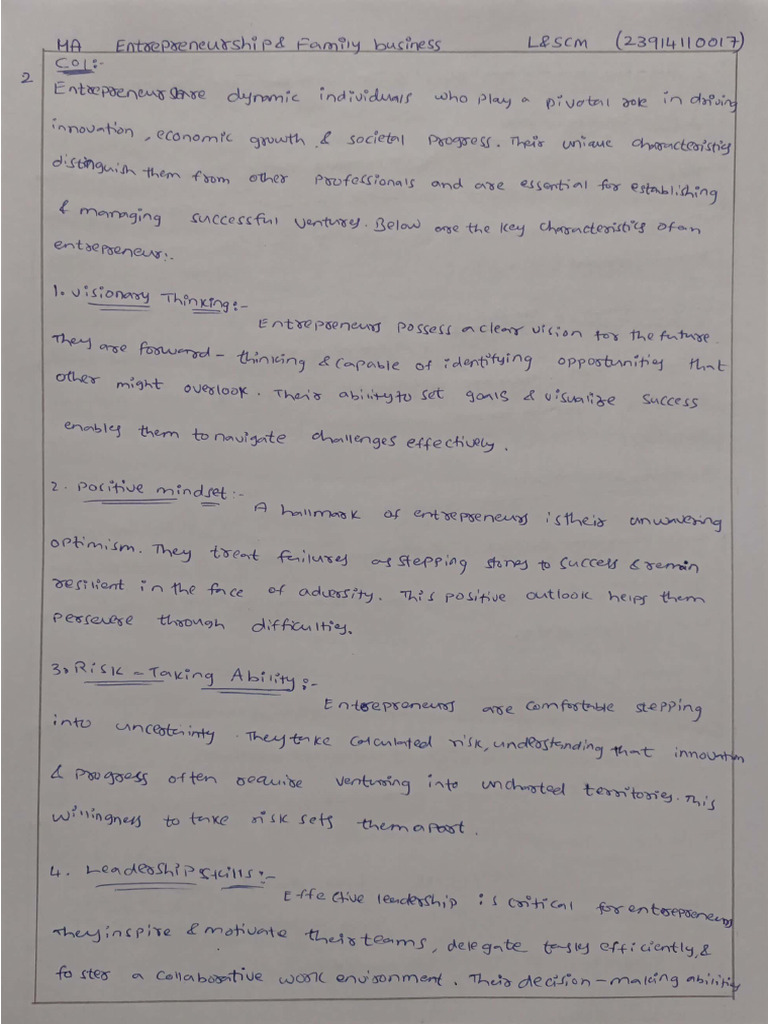 MA Entrepreneurship & Family business L&SCM (23914110017)
CO1:-
2
Entrepreneurs are dynamic individuals who play a pivotal role in driving
innovation, economic growth & societal progress. Their unique characteristics
distinguish them from other professionals and are essential for establishing
& managing successful ventures. Below are the key characteristics of an
entrepreneur:.
1. Visionary Thinking:-
Entrepreneurs possess a clear vision for the future.
They are forward-thinking & capable of identifying opportunities that
other might overlook. Their ability to set goals & visualize success
enables them to navigate challenges effectively.
2. Positive mindset:-
A hallmark of entrepreneurs is their unwavering
optimism. They treat failures as stepping stones to success & remain
resilient in the face of adversity. This positive outlook helps them
persevere through difficulties.
3. Risk-Taking Ability:-
Entrepreneurs are comfortable stepping
into uncertainty. They take calculated risk, understanding that innovation
& progress often require venturing into uncharted territories. This
willingness to take risk sets them apart.
4. Leadership skills:-
Effective leadership is critical for entrepreneurs
They inspire & motivate their teams, delegate tasks efficiently, &
foster a collaborative work environment. Their decision-making abilities